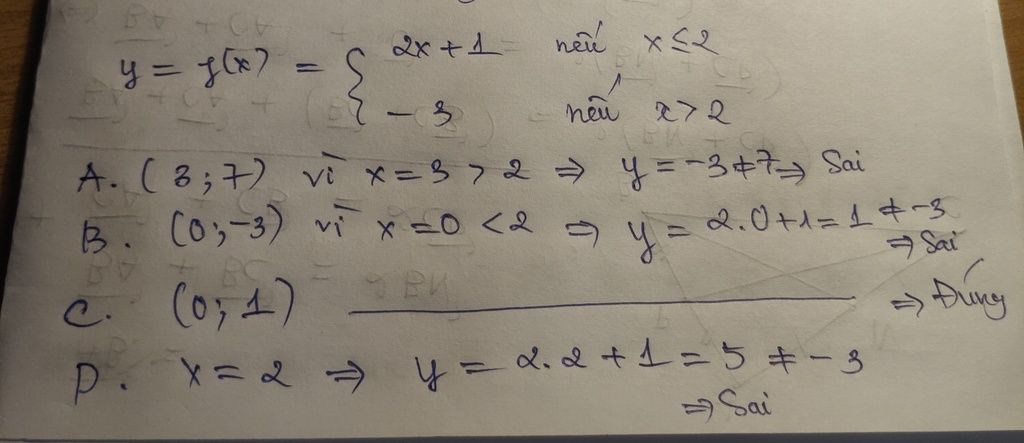 y = f(x) = { 2x + 1 nếu x ≤ 2
- 3 nếu x > 2
A. (3; 7) vì x = 3 > 2 ⇒ y = -3 ≠ 7 ⇒ Sai
B. (0; -3) vì x = 0 < 2 ⇒ y = 2.0 + 1 = 1 ≠ -3
⇒ Sai
C. (0; 1) ⇒ Đúng
D. x = 2 ⇒ y = 2.2 + 1 = 5 ≠ -3
⇒ Sai